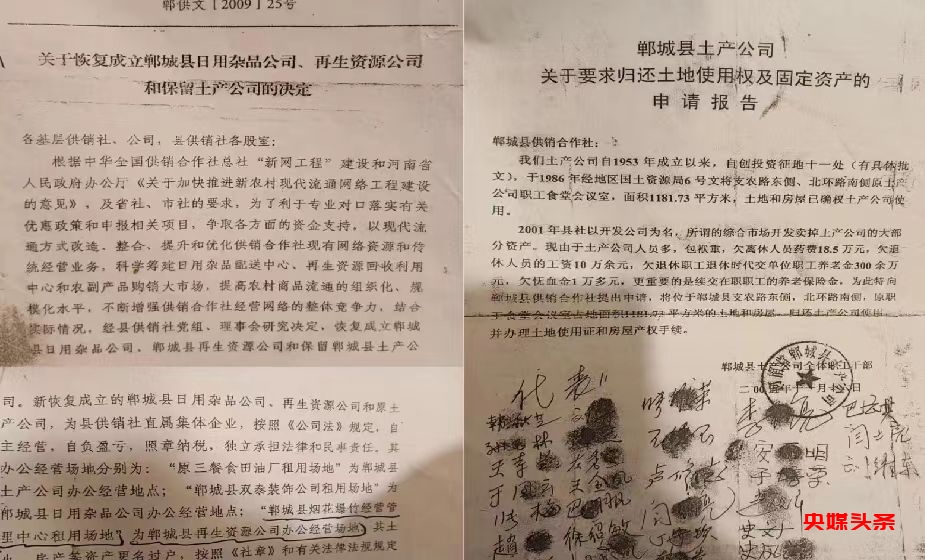 郸供文［2009］25号
关于恢复成立郸城县日用杂品公司、再生资源公司
和保留土产公司的决定
各基层供销社、公司，县供销社各股室：
根据中华全国供销合作社总社“新网工程”建设和河南省
人民政府办公厅《关于加快推进新农村现代流通网络工程建设
的意见》，及省社、市社的要求，为了利于专业对口落实有关
优惠政策和申报相关项目，争取各方面的资金支持，以现代流
通方式改造、整合、提升和优化供销合作社现有网络资源和传
统经营业务，科学筹建日用杂品配送中心、再生资源回收利用
中心和农副产品购销大市场，提高农村商品流通的组织化、规
模化水平，不断增强供销合作社经营网络的整体竞争力，结合
实际情况，经县供销社党组、理事会研究决定，恢复成立郸城
县日用杂品公司、郸城县再生资源公司和保留郸城县土产公
司。新恢复成立的郸城县日用杂品公司、再生资源公司和原土
产公司，为县供销社直属集体企业，按照《公司法》规定，自
主经营，自负盈亏，照章纳税，独立承担法律和民事责任。其
办公经营场地分别为：“原三餐食田油厂租用场地”为郸城县
土产公司办公经营地点；“郸城县双泰装饰公司租用场地”为
郸城县日用杂品公司办公经营地点；“郸城县烟花爆竹经营管
理中心租用场地”为郸城县再生资源公司办公经营场地）其土
房产等资产更名过户，按照《社章》和有关法律法规规定
郸城县土产公司
关于要求归还土地使用权及固定资产的
申请报告
郸城县供销合作社：
我们土产公司自1953年成立以来，自创投资征地十一处（有具体批
文），于1986年经地区国土资源局6号文将支农路东侧、北环路南侧原土产
公司职工食堂会议室，面积1181.73平方米，土地和房屋已确权土产公司使
用。
2001年县社以开发公司为名，所谓的综合市场开发卖掉土产公司的大部
分资产。现由于土产公司人员多，包袱重，欠离休人员药费18.5万元，欠退
休人员的工资10万余元，欠退休职工退休时代交单位职工养老金300余万
元，欠优血金1万多元，更重要的是续交在职职工的养老保险金，为此特向
郸城县供销合作社提出申请，将位于郸城县支农路东侧，北环路南侧，原职
工食堂会议室占地面积1181.73平方米的土地和房屋，归还土产公司使用，
并办理土地使用证和房屋产权手续。
郸城县土产公司全体职工干部
代表
央媒头条